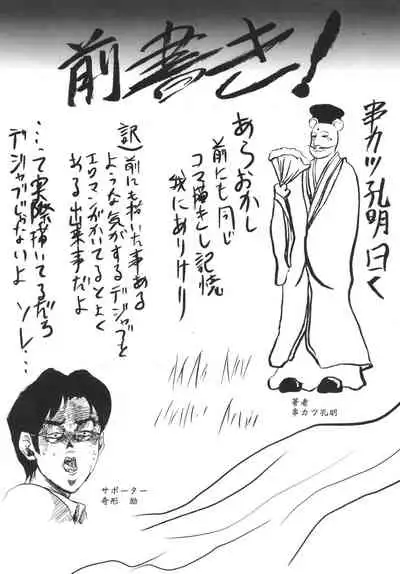 前書き!
串カツ孔明曰く
あらおかし
前にも同じ
コマ描きし記憶
我にありけり
訳)前にも描いた事ある
ような気がするデジャブと
エロマンガかいてるとよく
ある出来事だよ
…って実際描いてるだろ
デジャブじゃないよ ソレ…
著者
串カツ孔明
サポーター
奇形 励